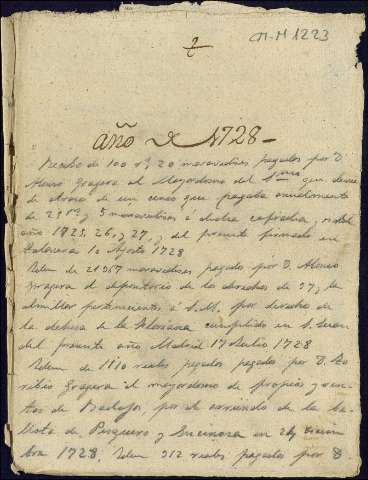 M-H 1223
año de 1728-
Recibo de 100 rs 20 maravedises pagados por D.
Alonso Grajera al Mayordomo del Smo que devia
de atraso de un censo que pagaba anualmente
de 25 rs y 5 maravedises á dicha cofradia, en los
año 1725, 26, y 27, y del presente firmado en
Talavera 1º Agosto 1728
Idem de 21967 maravedises pagados por D. Alonso
Grajera al depositario de los derechos de
pertenecientes á S. M. por derecho de
la dehesa de la cumplido en S. Juan
del presente año Madrid 17 Julio 1728
Idem de 1110 reales pagados por D.
Grajera al mayordomo de propios y ren-
tas de Badajoz, por el arriendo de la be-
llota de y en 24 Diciem
bre 1728. Idem 312 reales pagados por D.